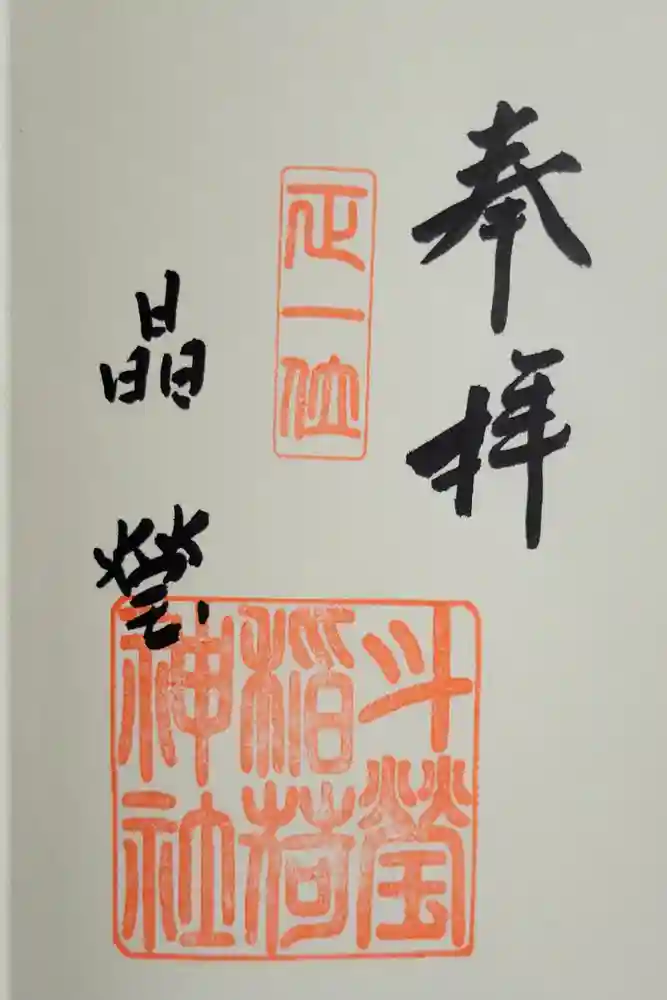 奉拝
正一位
斗瑩
稲荷
神社
晶瑩